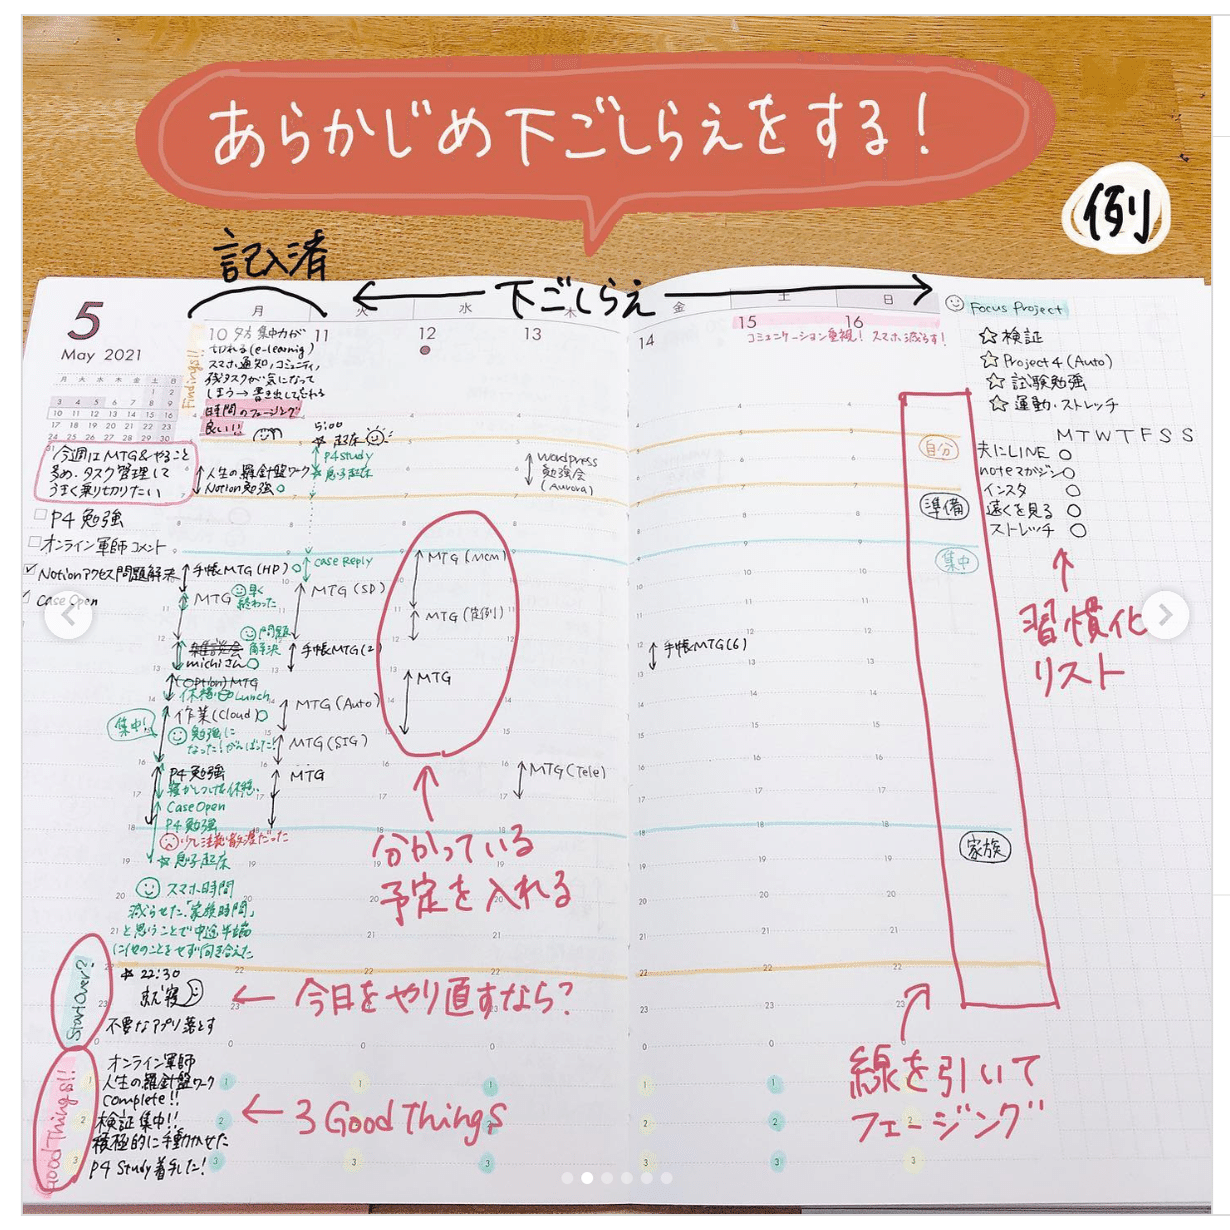 あらかじめ下ごしらえをする!
例
記入済
下ごしらえ
5
May 2021
月 火 水 木 金 土 日
1 2
3 4 5 6 7 8 9
10 11 12 13 14 15 16
17 18 19 20 21 22 23
24 25 26 27 28 29 30
31
今週はMTG&やること
多め。タスク管理して
うまく乗り切りたい
P4 勉強
オンライン軍師コメント
Notionアクセス問題解決
Case Open
月
10
Findings!!
夕方 集中力が
切れる(e-learnig)
スマホ通知,コミュニティ,
残タスクが気になって
しまう→書き出して忘れる
時間のフェージング
良い!!
人生の羅針盤ワーク
Notion勉強
手帳MTG(HP)
MTG
早く
終わった
雑談会
michiさん
問題
解決
(Option)MTG
休憩 Lunch
作業(Cloud)
集中!
勉強に
なった!がんばった!
P4 勉強
寝かしつけ休憩
Case Open
P4 勉強
少し注意散漫だった
息子起床
スマホ時間
減らせた。「家族時間」
と思うことで中途半端
に他のことをせず向き合えた
Start Over?
22:30
就寝
不要なアプリ落とす
Good Things!!
オンライン軍師
1 人生の羅針盤ワーク
complete!!
2 検証集中!!
積極的に手動かせた
3 P4 Study着手した!
火
11
5:00
起床
P4 study
息子起床
case Reply
MTG (SD)
手帳MTG(2)
MTG (Auto)
MTG (SIG)
MTG
水
12
MTG (Mcm)
MTG (定例)
MTG
分かっている
予定を入れる
今日をやり直すなら?
3 Good Things
木
13
Wordpress
勉強会
(Aurora)
MTG (Tele)
金
14
手帳MTG(6)
土
15
日
16
コミュニケーション重視! スマホ減らす!
自分
準備
集中
家族
線を引いて
フェージング
Focus Project
☆ 検証
☆ Project 4 (Auto)
☆ 試験勉強
☆ 運動・ストレッチ
M T W T F S S
夫にLINE
noteマガジン
インスタ
遠くを見る
ストレッチ
習慣化
リスト